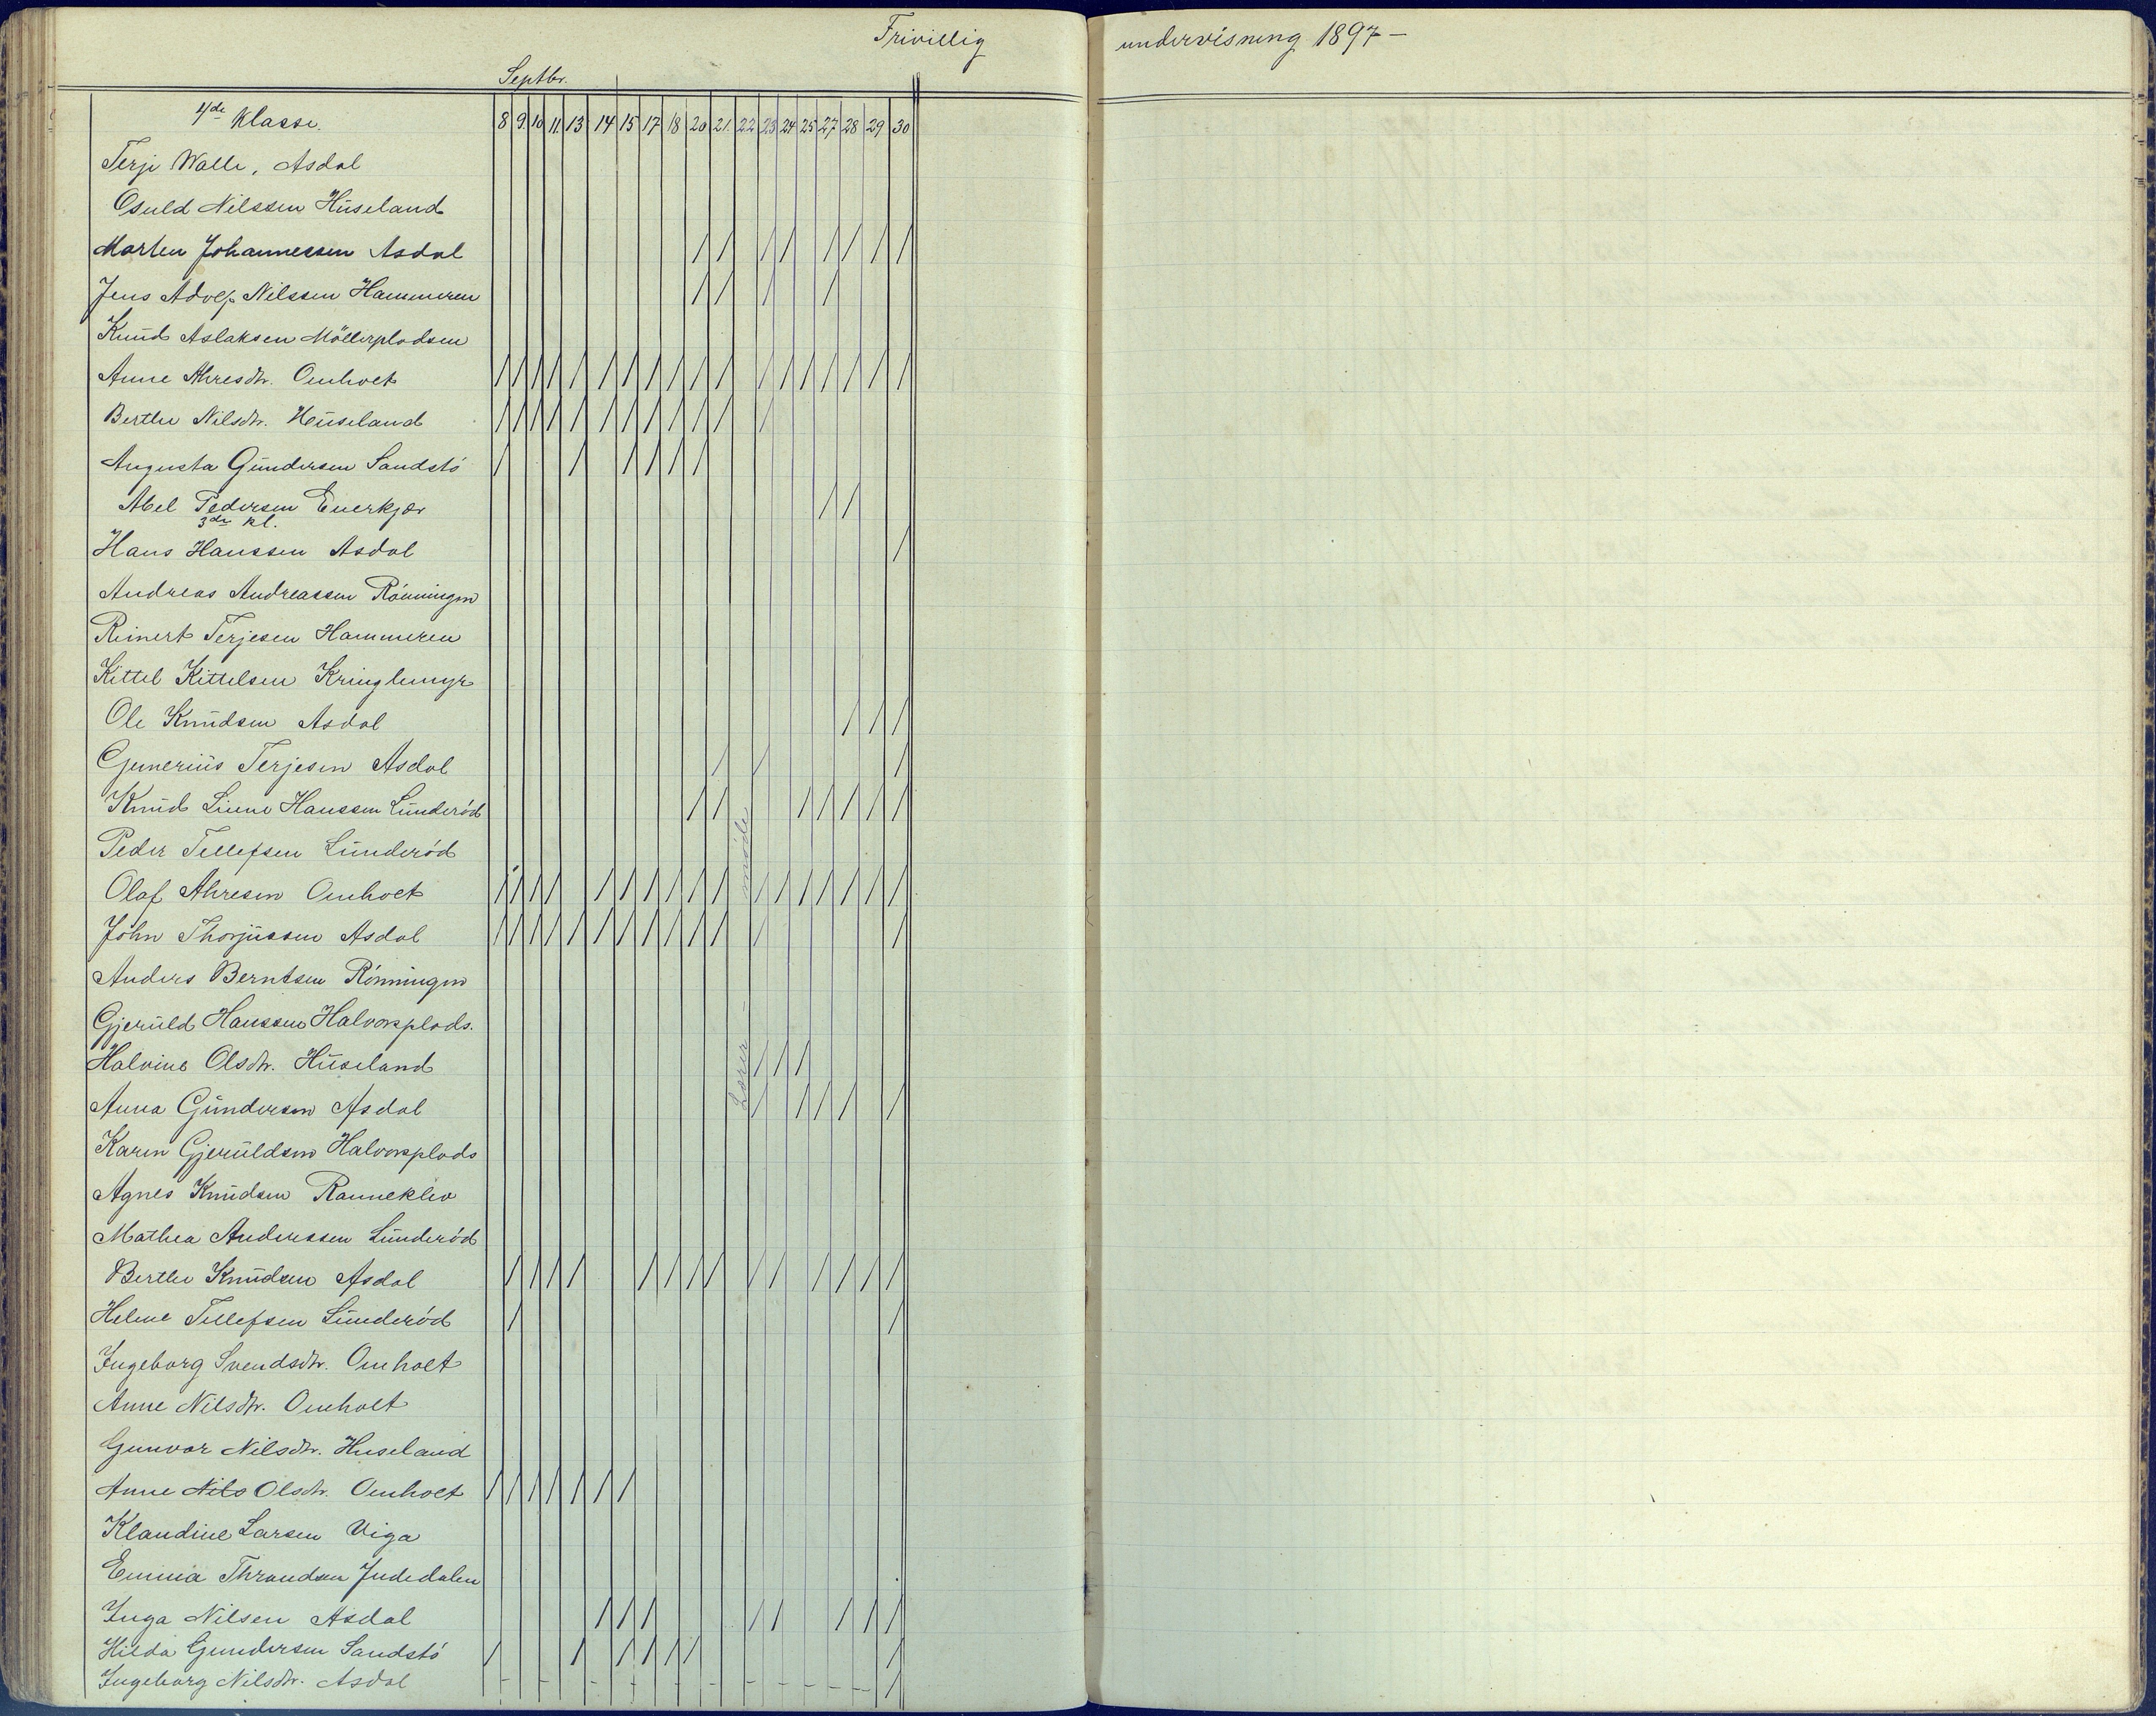 Frivillig undervisning 1897 –
Septbr.
4de klasse. 8 9 10 11 13 14 15 17 18 20 21 22 23 24 25 27 28 29 30
Terje Walle, Asdal
Osuld Nilssen Huseland
Morten Johannessen Asdal / / / / / / / /
Jens Adolf Nilssen Hammeren / / / /
Knud Aslaksen Möllerpladsen
Anne Ahresdtr. Omholt / / / / / / / / / / / / / / / / / /
Berthe Nilsdtr. Huseland / / / / / / / / / / / /
Augusta Gundersen Sandstö / / / / / /
Abel Pedersen Enerkjær / /
3de kl.
Hans Hanssen Asdal /
Andreas Andreassen Rönningen
Reinert Terjesen Hammeren
Kittel Kittelsen Kringlemyr
Ole Knudsen Asdal / / /
Gunerius Terjesen Asdal / / /
Knud Liene Hanssen Lunderöd / / / / / / /
Peder Tellefsen Lunderöd
Olaf Ahresen Omholt / / / / / / / / / / / / / / / / /
John Thorjussen Asdal / / / / / / / / / / / / /
Anders Berntsen Rönningen
Gjeruld Hanssen Halvorsplads.
Halvine Olsdtr. Huseland / / /
Anna Gundersen Asdal / / / / /
Karen Gjeruldsen Halvorsplads
Agnes Knudsen Rannekleiv
Mathea Anderssen Lunderöd
Berthe Knudsen Asdal / / / / / / / / / / / / / /
Helene Tellefsen Lunderöd / /
Ingeborg Svendsdtr. Omholt
Anne Nilsdtr. Omholt
Gunvor Nilsdtr. Huseland
Anne Nils Olsdtr. Omholt / / / / / / /
Klaudine Larsen Viga
Emma Throndsen Judedalen
Inga Nilsen Asdal / / / / / / / /
Hilda Gundersen Sandstö / / / / / / /
Ingeborg Nilsdtr. Asdal - - - - - - - - - - - - /
Lærer – möde